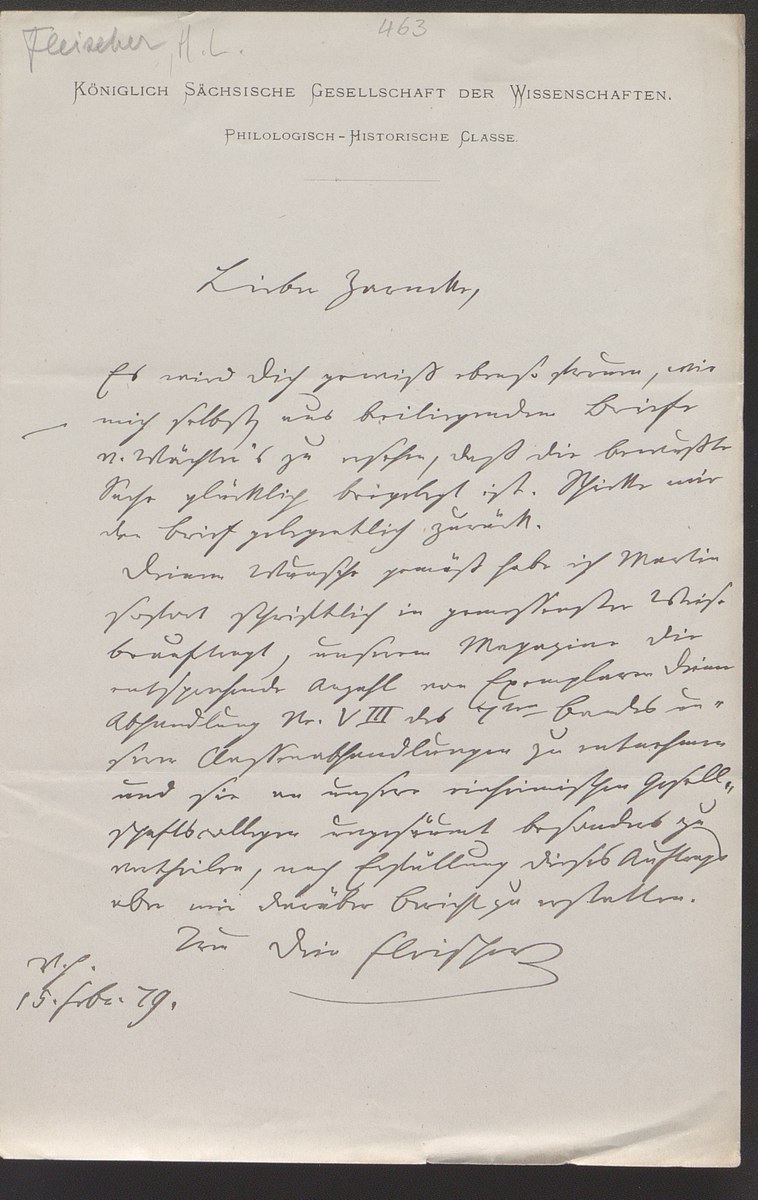 Fleischer, H. L.
463
Königlich Sächsische Gesellschaft der Wissenschaften.
Philologisch-Historische Classe.
Lieber Zarncke,
Es wird Dich gewiß ebenso freuen, wie
mich selbst, aus beiliegendem Briefe
v. Wächter's zu ersehen, daß die bewußte
Sache glücklich beigelegt ist. Schicke mir
den Brief gelegentlich zurück.
Deinem Wunsche gemäß habe ich Martin
sofort schriftlich in gemessenster Weise
beauftragt, unserem Magazine die
entsprechende Anzahl von Exemplaren Deiner
Abhandlung Nr. VIII des 7ten Bandes un-
serer Classenabhandlungen zu entnehmen
und sie an unsere einheimischen Gesell-
schaftscollegen ungesäumt besonders zu
vertheilen, nach Erfüllung dieses Auftrags
aber mir darüber Bericht zu erstatten.
Treu Dein Fleischer
15. Febr. 79.